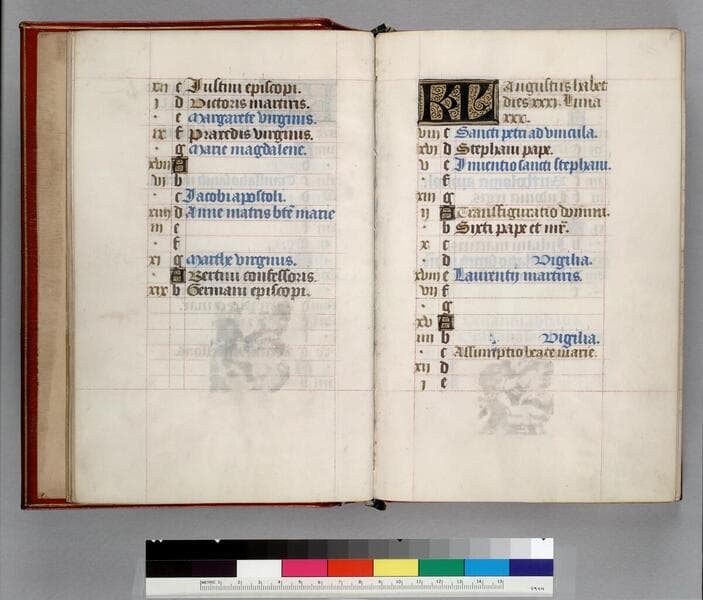 xii c Justini episcopi.
i d Victoris martiris.
· e Margarete virginis.
ix f Praxedis virginis.
· g Marie magdalene.
xvii A
vi b
· c Jacobi apostoli.
xiiii d Anne matris bte marie
iii e
· f
xi g Marthe virginis.
· A Bertini confessoris.
xix b Germani episcopi.
KL Augustus habet
dies xxxi. Luna
xxx.
viii c Sancti petri ad vincula.
xvi d Stephani pape.
v e Inventio sancti stephani.
· f
xiii g
ii A Transfiguratio domini.
· b Sixti pape et mr.
x c
· d Vigilia.
xviii e Laurentij martiris.
vii f
· g
xv A
iiii b Vigilia.
· c Assumptio beate marie.
xii d
i e
METRIC 1 2 3 4 5 6 7 8 9 10 11 12 13 14 15